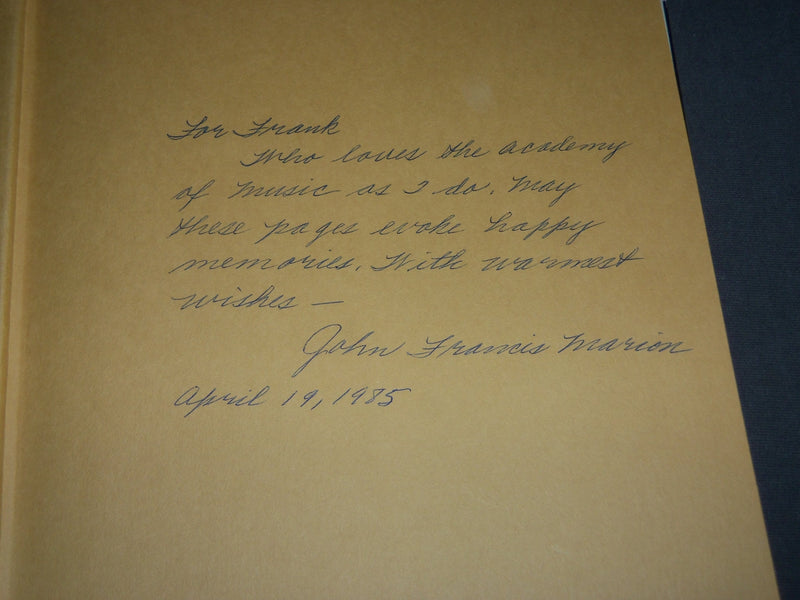 For Frank
Who loves the academy
of music as I do. May
these pages evoke happy
memories. With warmest
wishes —
John Francis Marion
April 19, 1985